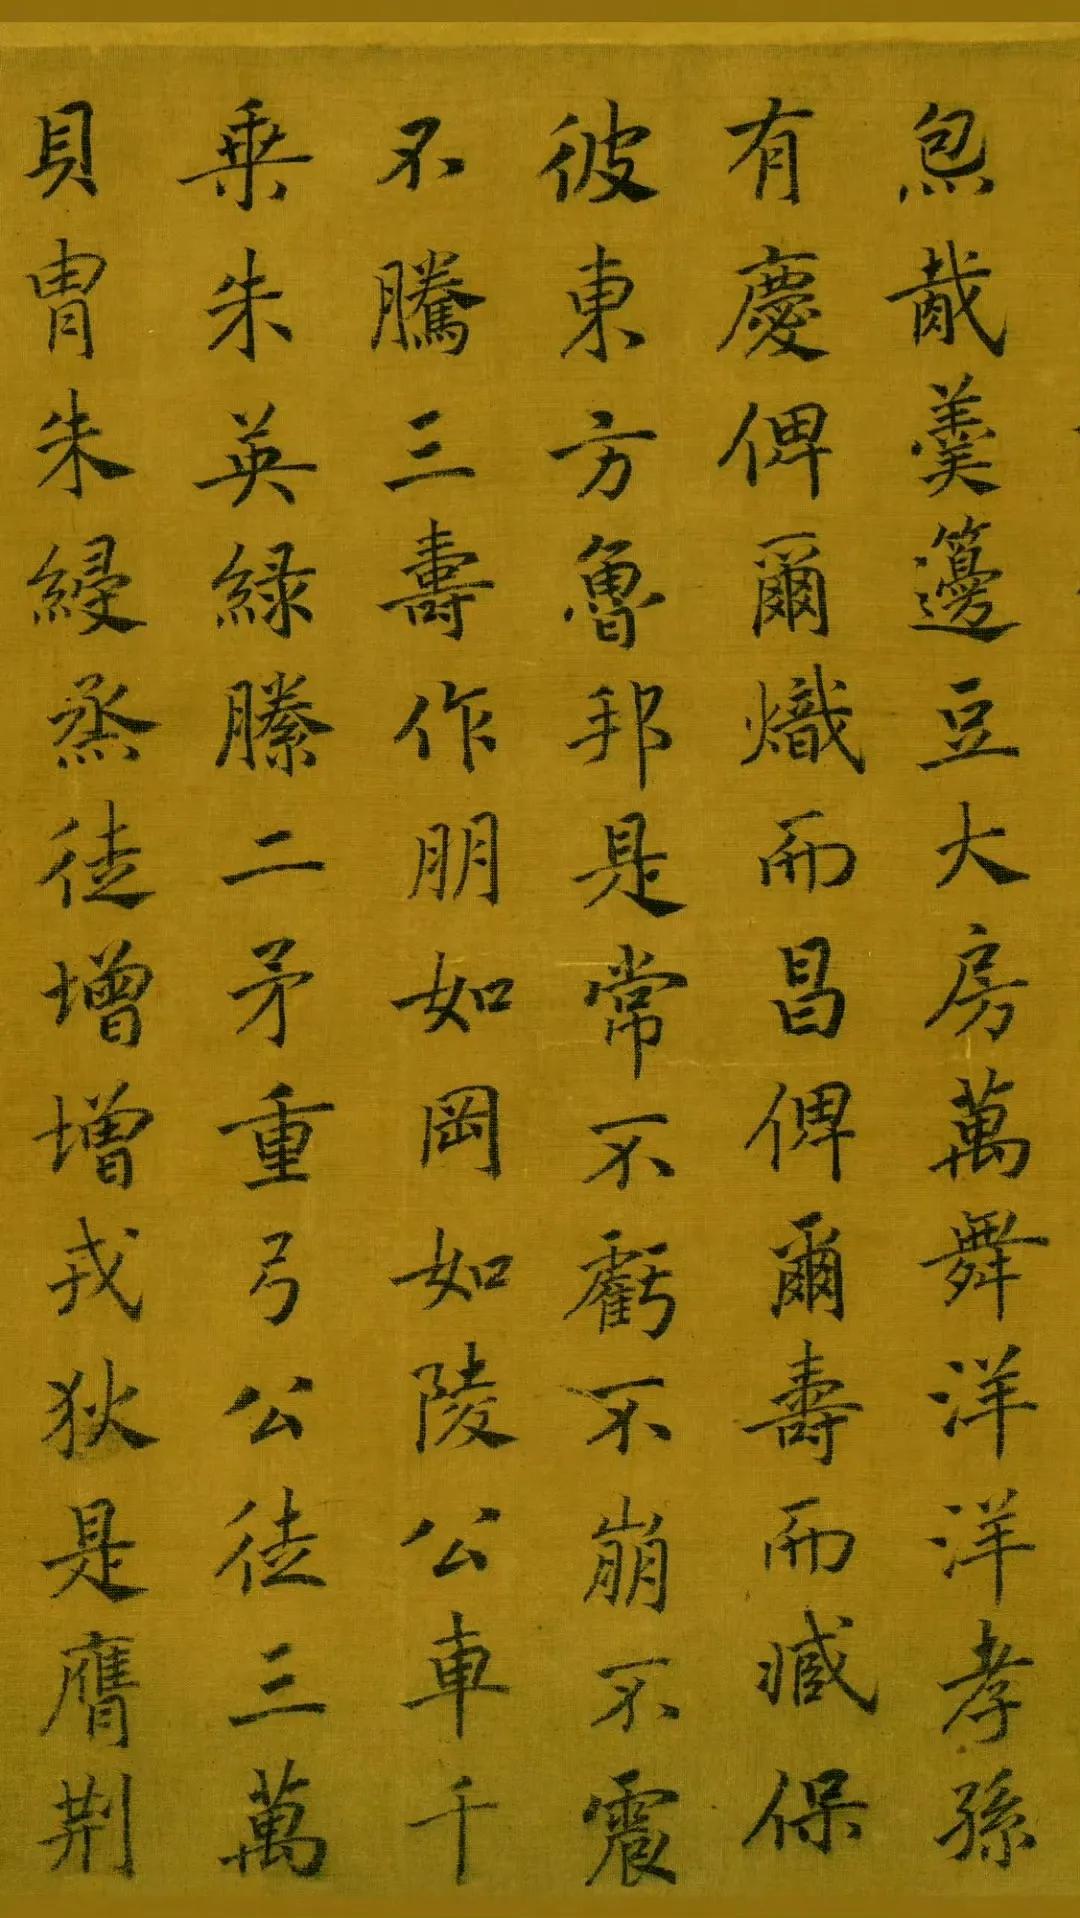 炰胾羹籩豆大房萬舞洋洋孝孫
有慶俾爾熾而昌俾爾壽而臧保
彼東方魯邦是常不虧不崩不震
不騰三壽作朋如岡如陵公車千
乗朱英緑縢二矛重弓公徒三萬
貝胄朱綅烝徒增增戎狄是膺荆